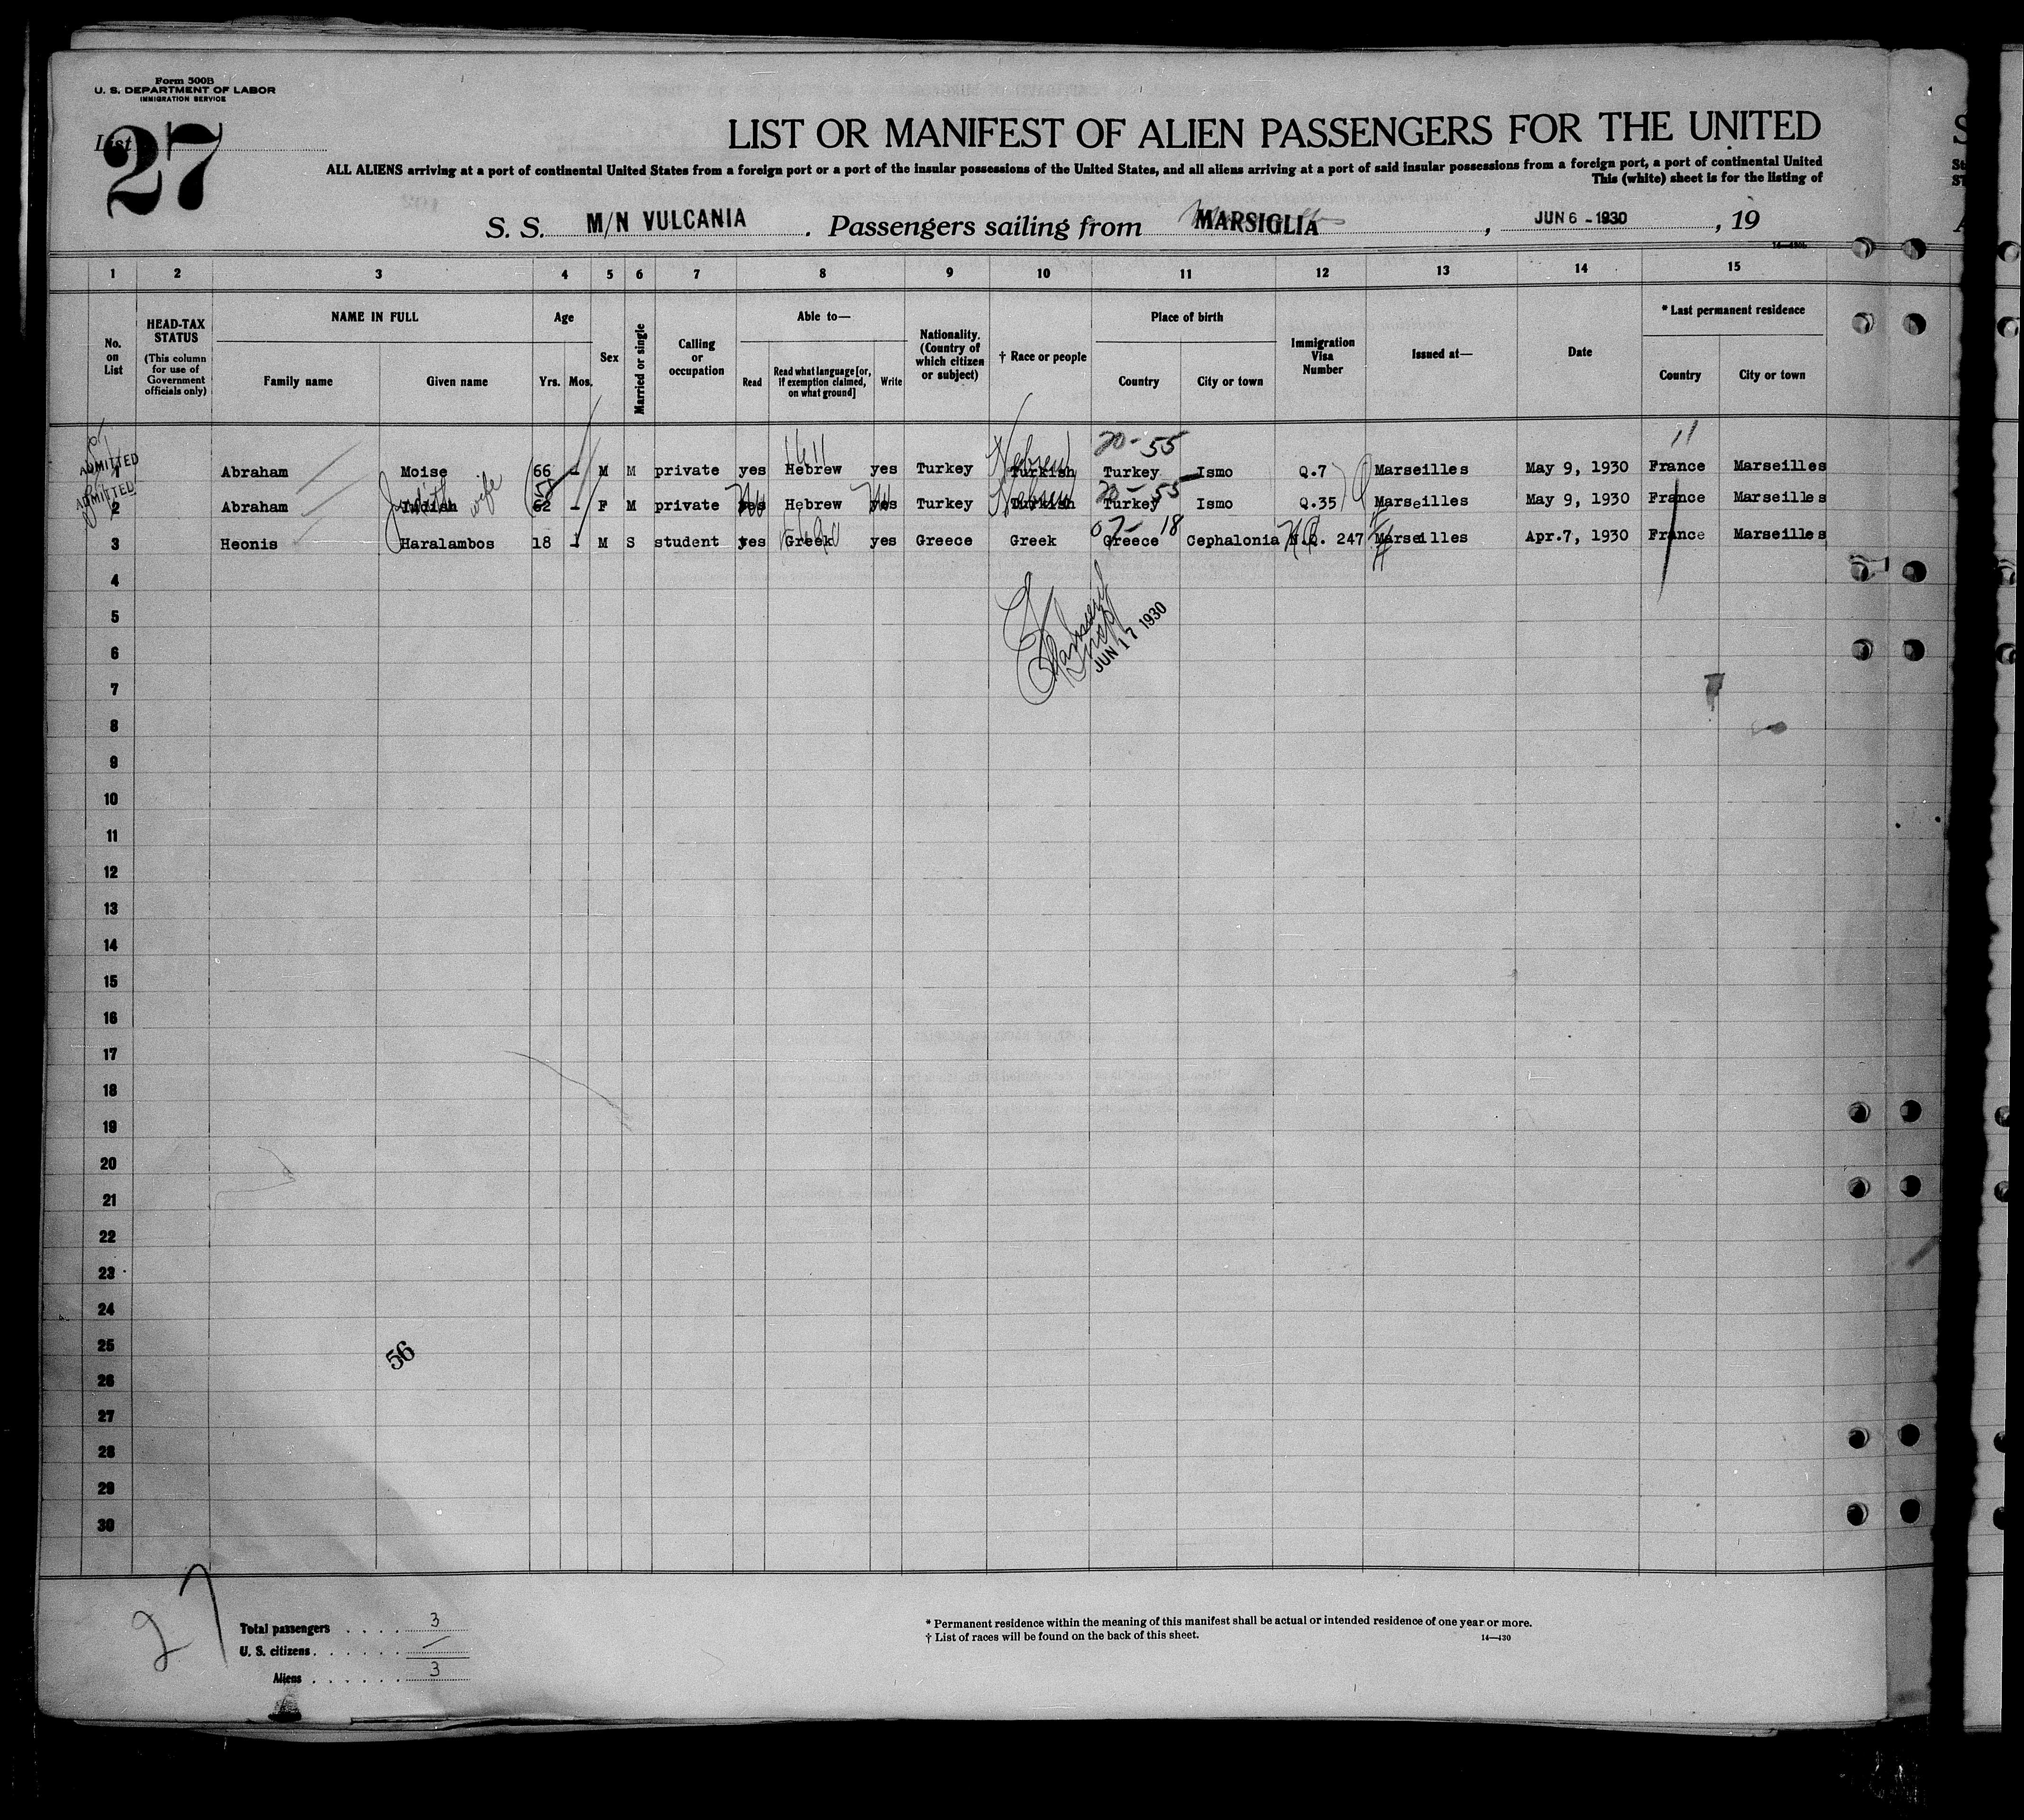 Form 500B
U. S. DEPARTMENT OF LABOR
IMMIGRATION SERVICE
List 27
LIST OR MANIFEST OF ALIEN PASSENGERS FOR THE UNITED
ALL ALIENS arriving at a port of continental United States from a foreign port or a port of the insular possessions of the United States, and all aliens arriving at a port of said insular possessions from a foreign port, a port of continental United
This (white) sheet is for the listing of
S. S. M/N VULCANIA. Passengers sailing from MARSIGLIA, JUN 6 - 1930, 19
1 2 3 4 5 6 7 8 9 10 11 12 13 14 15
No. on List
HEAD-TAX STATUS (This column for use of Government officials only)
NAME IN FULL
Family name Given name
Age
Yrs. Mos.
Sex
Married or single
Calling or occupation
Able to—
Read
Read what language [or, if exemption claimed, on what ground]
Write
Nationality. (Country of which citizen or subject)
† Race or people
Place of birth
Country City or town
Immigration Visa Number
Issued at—
Date
* Last permanent residence
Country City or town
Hebrew 70-55 11
ADMITTED 1 Abraham Moise 66 - M M private yes Hebrew yes Turkey Turkish Turkey Ismo Q.7 Marseilles May 9, 1930 France Marseilles
Judith wife No No Hebrew 70-55
ADMITTED 2 Abraham 62 - F M private yes Hebrew yes Turkey Turkish Turkey Ismo Q.35 Marseilles May 9, 1930 France Marseilles
07-18
3 Heonis Haralambos 18 1 M S student yes Greek yes Greece Greek Greece Cephalonia N.Q. 247 Marseilles Apr.7, 1930 France Marseilles
4
5
JUN 17 1930
6
7
8
9
10
11
12
13
14
15
16
17
18
19
20
21
22
23
24
25
56
26
27
28
29
30
27
Total passengers . . . . 3
U. S. citizens . . . . . . —
Aliens . . . . . . 3
* Permanent residence within the meaning of this manifest shall be actual or intended residence of one year or more.
† List of races will be found on the back of this sheet.
14—430